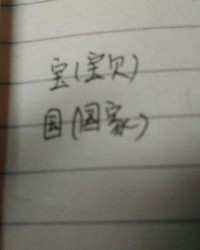 宝(宝贝)
国(国家)